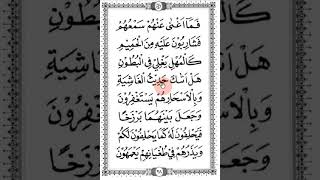 فَمَا اَغْنٰى عَنْهُمْ سَمْعُهُمْ
فَشَارِبُوْنَ عَلَيْهِ مِنَ الْحَمِيْمِ
كَالْمُهْلِ يَغْلِيْ فِي الْبُطُوْنِ
هَلْ اَتٰىكَ حَدِيْثُ الْغَاشِيَةِ
وَبِالْاَسْحَارِهُمْ يَسْتَغْفِرُوْنَ
وَجَعَلَ بَيْنَهُمَا بَرْزَخًا
فَيَحْلِفُوْنَ لَهٗ كَمَا يَحْلِفُوْنَ لَكُمْ
وَيَذَرُهُمْ فِيْ طُغْيَانِهِمْ يَعْمَهُوْنَ